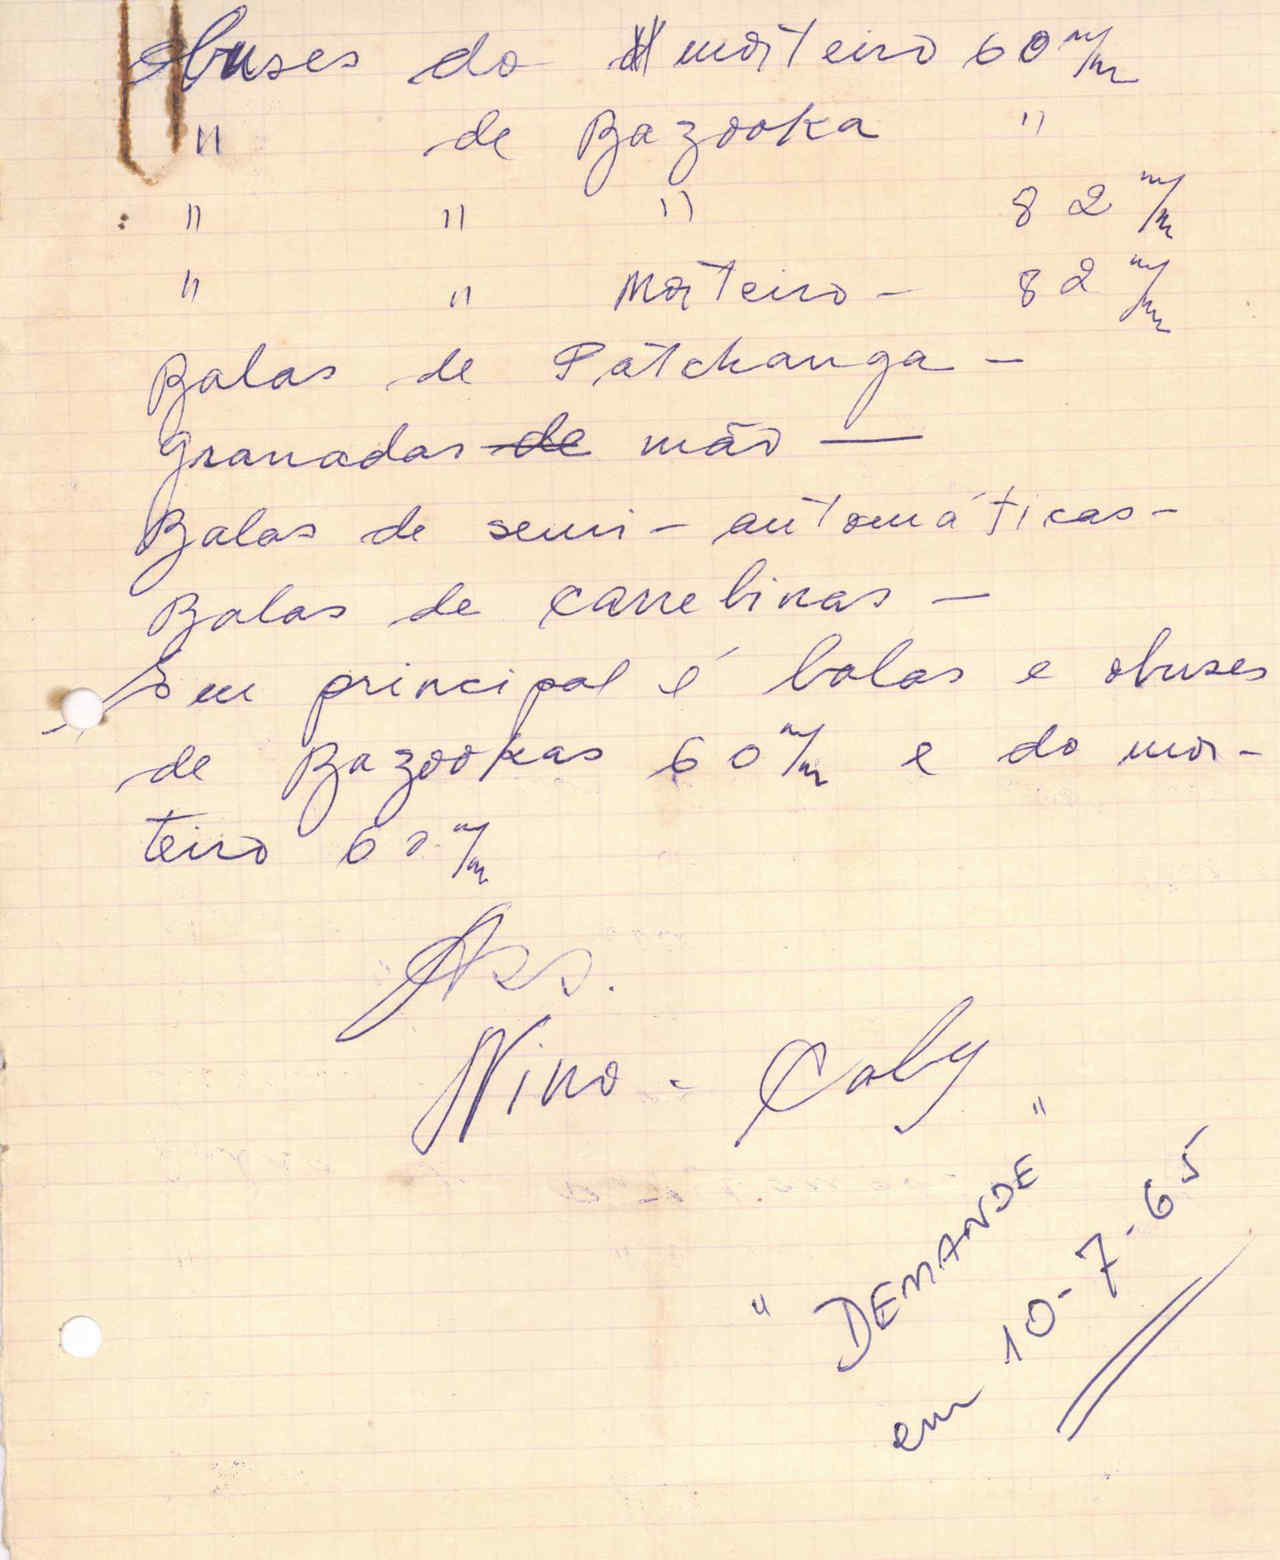 Obuses do morteiro 60 m/m
" de Bazooka "
" " " 82 m/m
" " Morteiro - 82 m/m
Balas de Patchanga -
Granadas de mão —
Balas de semi-automáticas -
Balas de carrebinas -
Em principal é balas e obuses
de Bazookas 60 m/m e do mor-
teiro 60 m/m
Ass.
Nino - Caby
"DEMANDE"
em 10-7-65